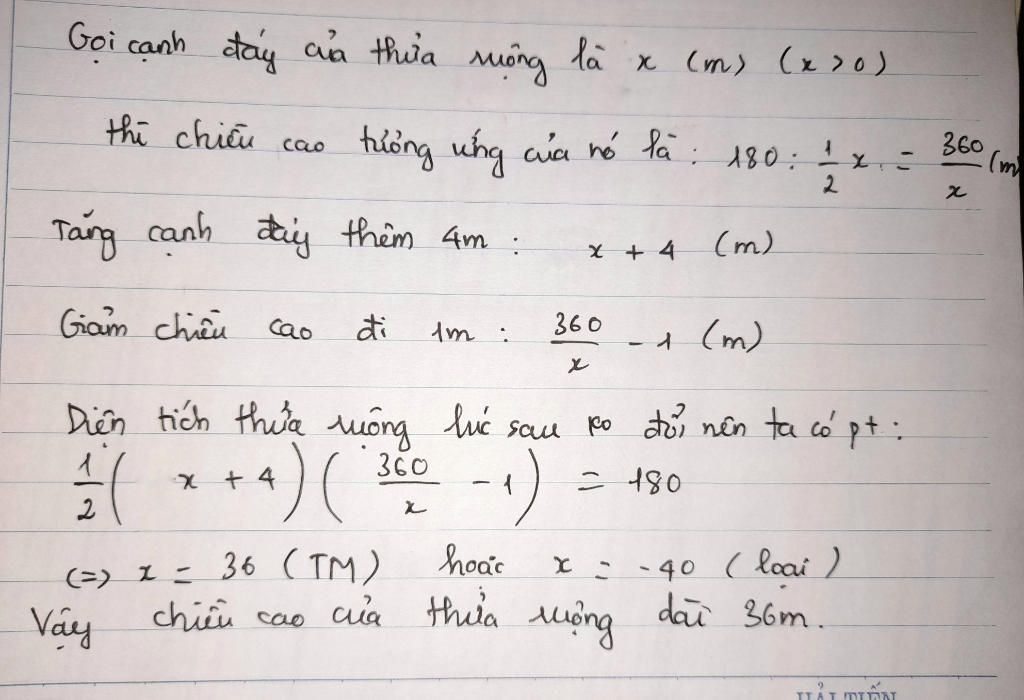 Gọi cạnh đáy của thửa ruộng là x (m) (x > 0)
thì chiều cao tương ứng của nó là : 180 : 1/2 x = 360/x (m
Tăng cạnh đáy thêm 4m : x + 4 (m)
Giảm chiều cao đi 1m : 360/x - 1 (m)
Diện tích thửa ruộng lúc sau ko đổi nên ta có pt :
1/2 ( x + 4 ) ( 360/x - 1 ) = 180
(=) x = 36 (TM) hoặc x = -40 (loại)
Vậy chiều cao của thửa ruộng dài 36m.
HẢI TIẾN